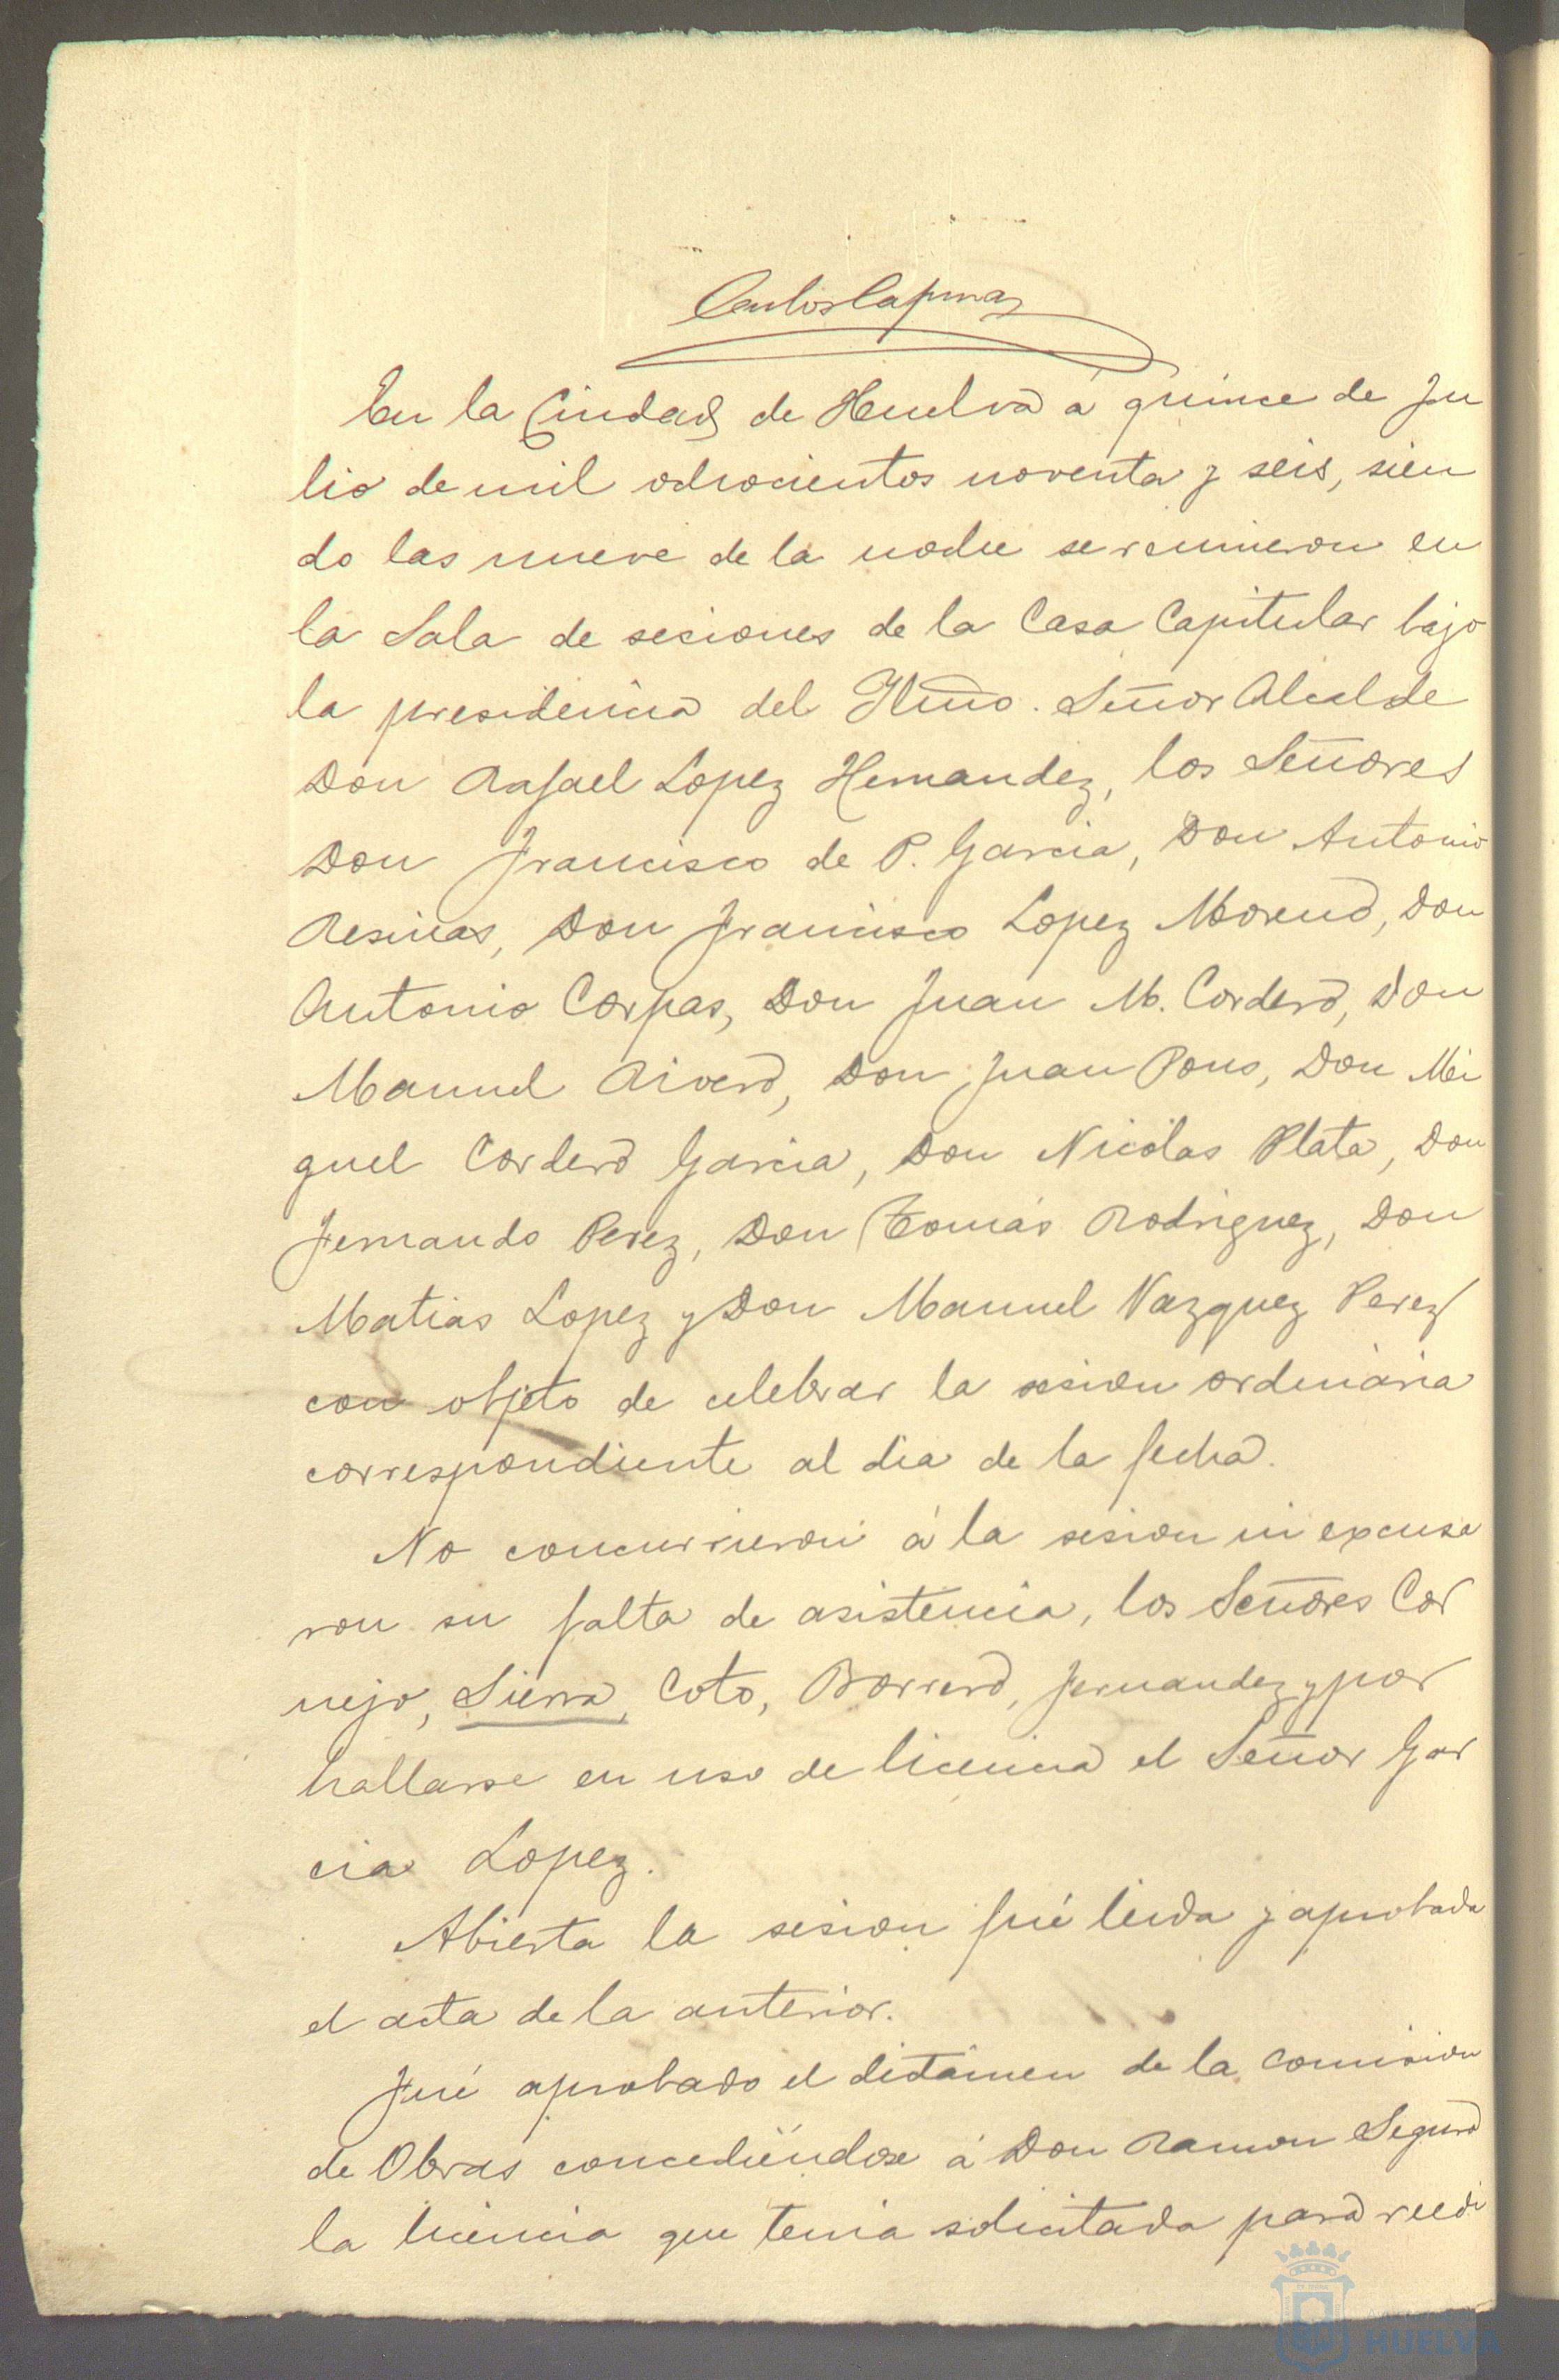 Carlos
En la Ciudad de Huelva á quince de Ju
lio de mil ochocientos noventa y seis, sien
do las nueve de la noche se reunieron en
la Sala de sesiones de la Casa Capitular bajo
la presidencia del Iltmo. Señor Alcalde
Don Rafael Lopez Hernandez, los Señores
Don Francisco de P. Garcia, Don Antonio
Resinas, Don Francisco Lopez Moreno, Don
Antonio Corpas, Don Juan M. Cordero, Don
Manuel Rivero, Don Juan Pons, Don Mi
guel Cordero Garcia, Don Nicolas Plata, Don
Fernando Perez, Don Tomás Rodriguez, Don
Matias Lopez y Don Manuel Vazquez Perez
con objeto de celebrar la sesion ordinaria
correspondiente al dia de la fecha.
No concurrieron á la sesion ni excusa
ron su falta de asistencia, los Señores Cor
nejo, Sierra, Coto, Borrero, Fernandez y por
hallarse en uso de licencia el Señor Gar
cia Lopez.
Abierta la sesion fué leida y aprobada
el acta de la anterior.
Fué aprobado el dictámen de la comision
de Obras concediéndose á Don Ramon Seguro
la licencia que tenia solicitada para reedi
HUELVA